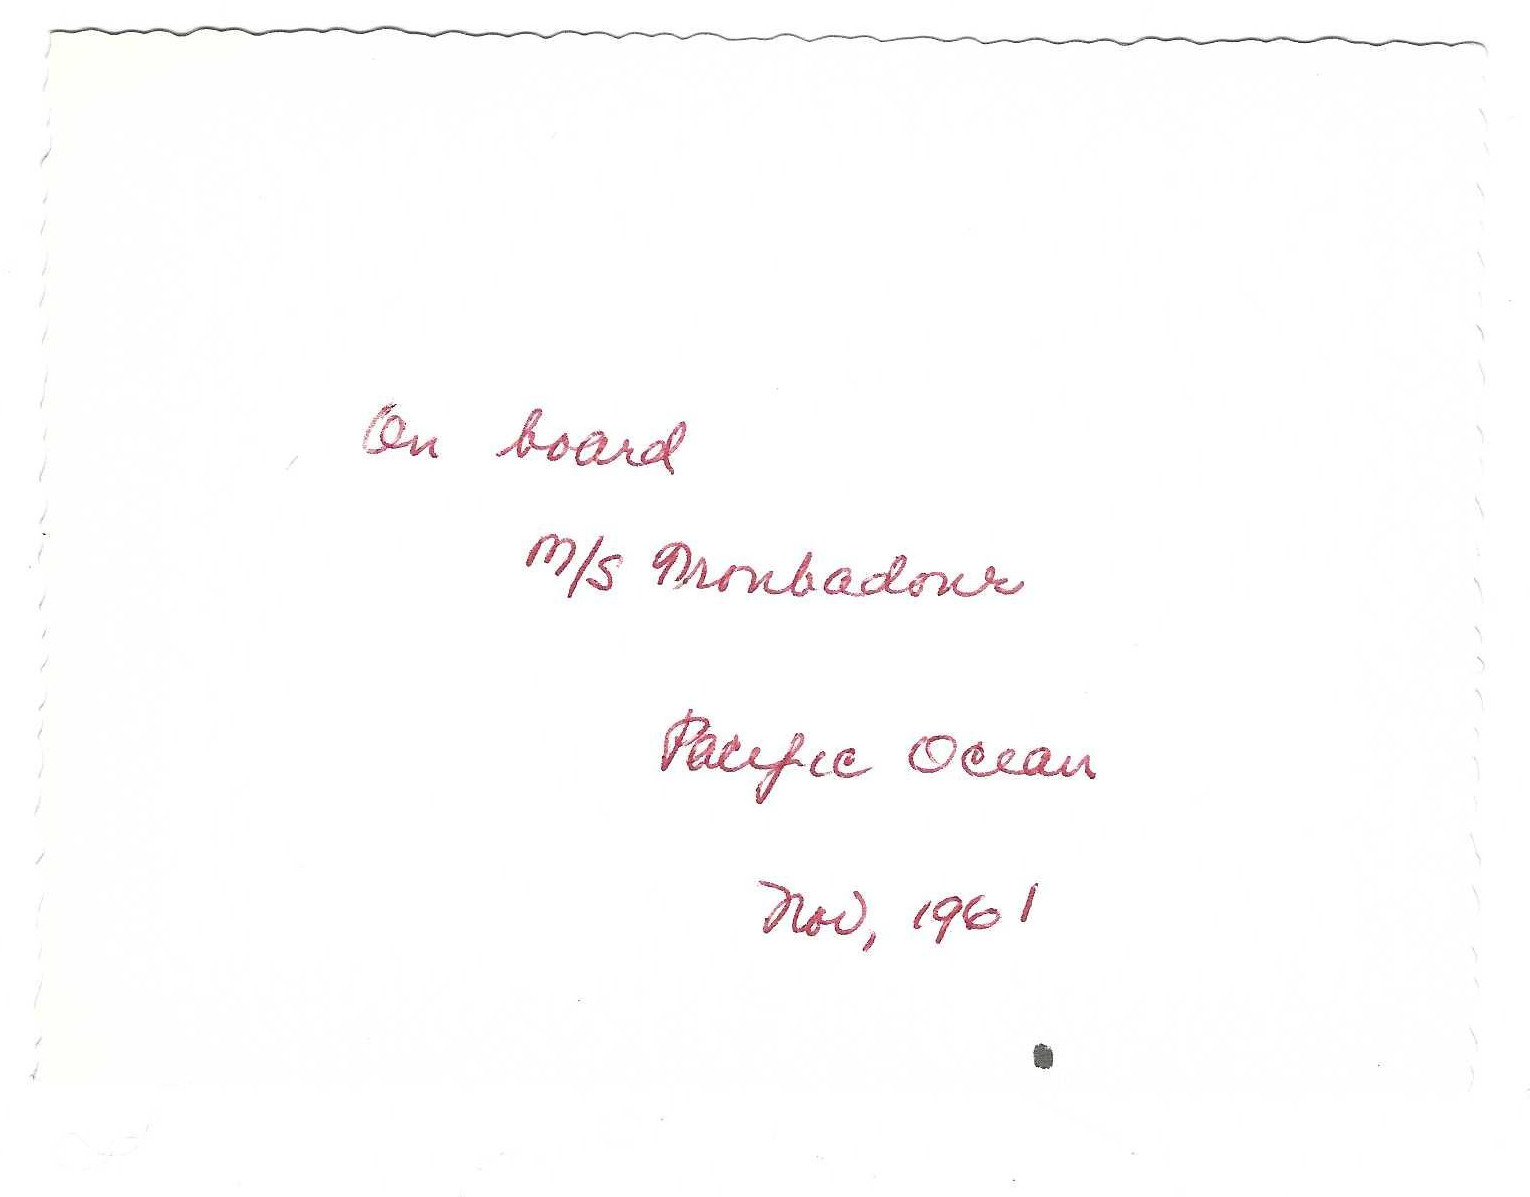 On board
M/S Troubadour
Pacific Ocean
Nov, 1961